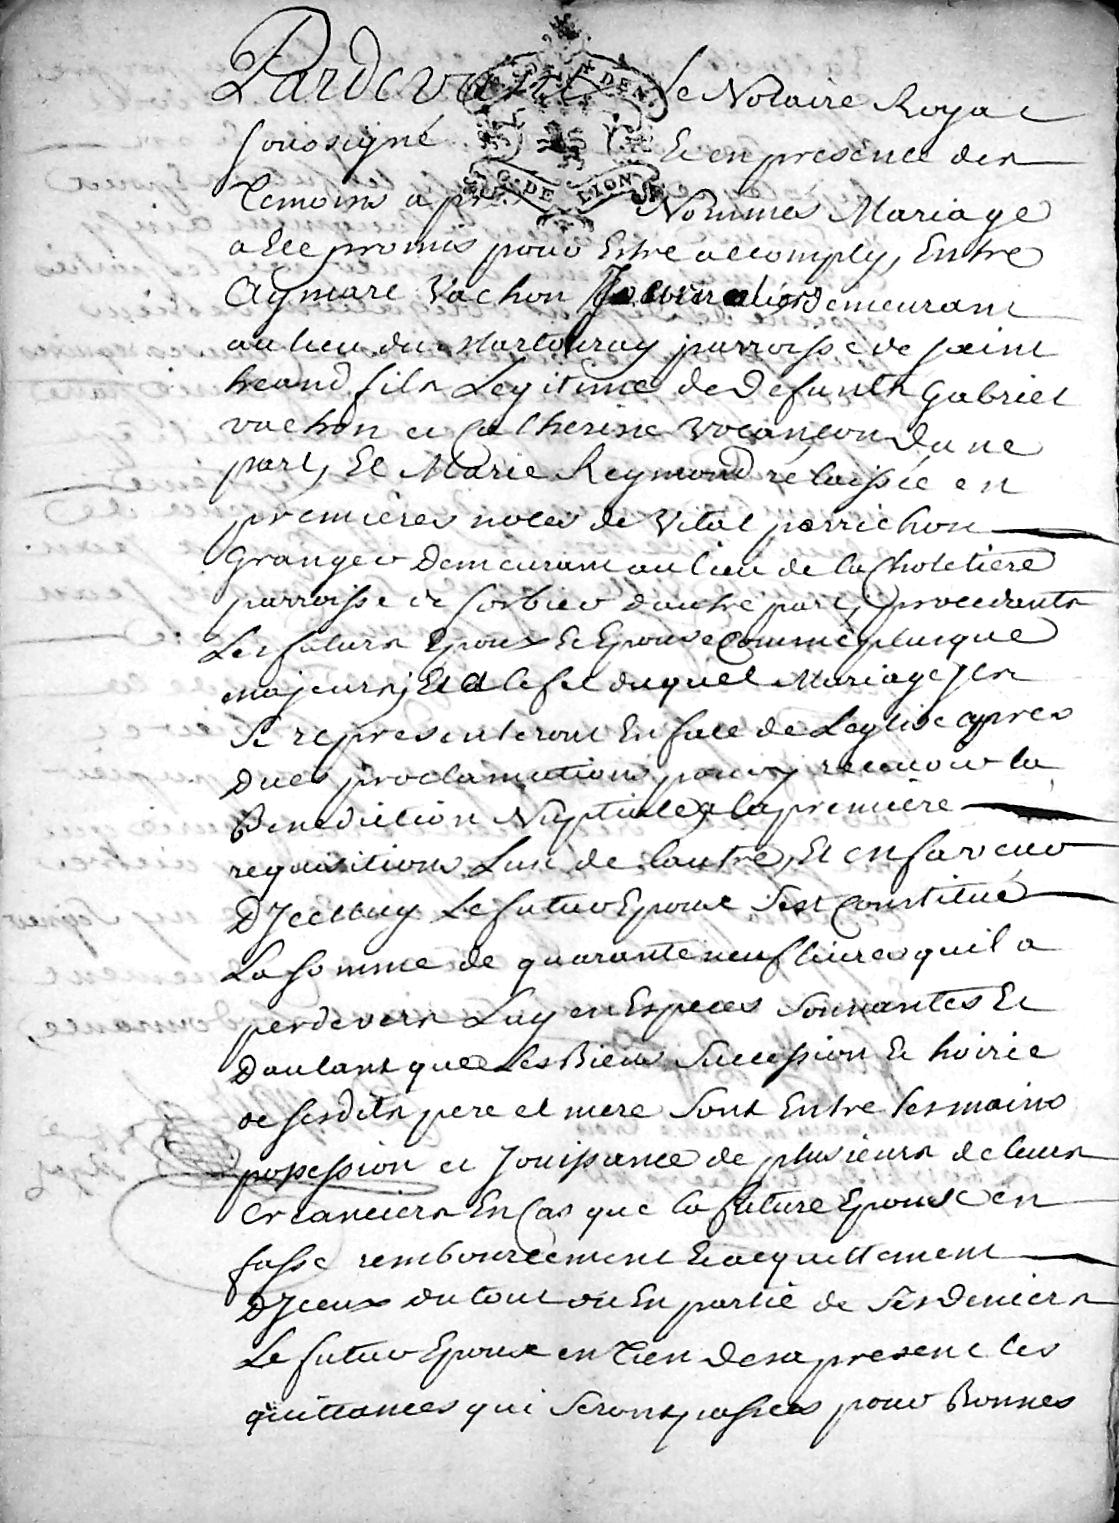 Pardevant le Notaire Royal
soussigné Et en presence des
Temoins apres Nommes Mariage
a Ete promis pour Estre accomply, Entre
Aymard Vachon demeurant
au lieu du Martouray parroisse de saint
heand fils Legitime de Defunts Gabriel
vachon et Catherine Vocançon Dune
part, Et Marie Reymond rélaissée en
premières noces de Vital perrichon
Granger Demeurant au lieu de la Choletiere
parroisse de sorbier dautre part, procedants
Les futurs Epoux Et Epouse Comme plusque
majeurs, Et A leffet duquel Mariage Jls
Se representeront En face de Leglise apres
Dues proclamations pour y recevoir la
Benediction Nuptiale a la premiere
requisition Lun de lautre, Et en faveur
DJcelluy Le futur Epoux Sest Constitué
La somme de quarante neuf livres quil a
perdevers Luy en Especes Sonnantes Et
Dautant que Les Biens Succession Et hoirie
de sesdits pere et mere Sont Entre les mains
possession et Jouissance de plusieurs de leurs
Creanciers En Cas que la future Epouse en
fasse remboursement Et acquittement
DJceux du tout ou En partie de Ses Deniers
Le futur Epoux en Tien Des a present les
quittances qui Seront passées pour Bonnes
G. DE LION